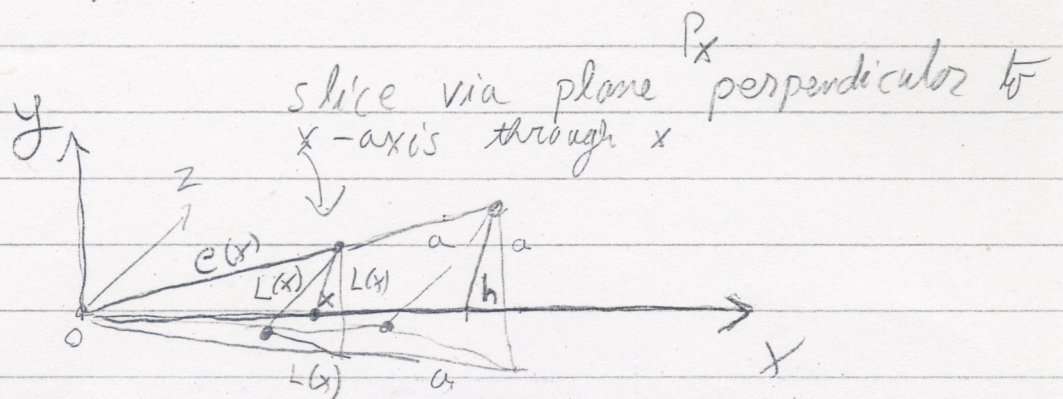 Px
slice via plane perpendicular to
x-axis through x
y
z
e(x)
a
a
L(x)
L(x)
x
h
0
L(x)
a
X